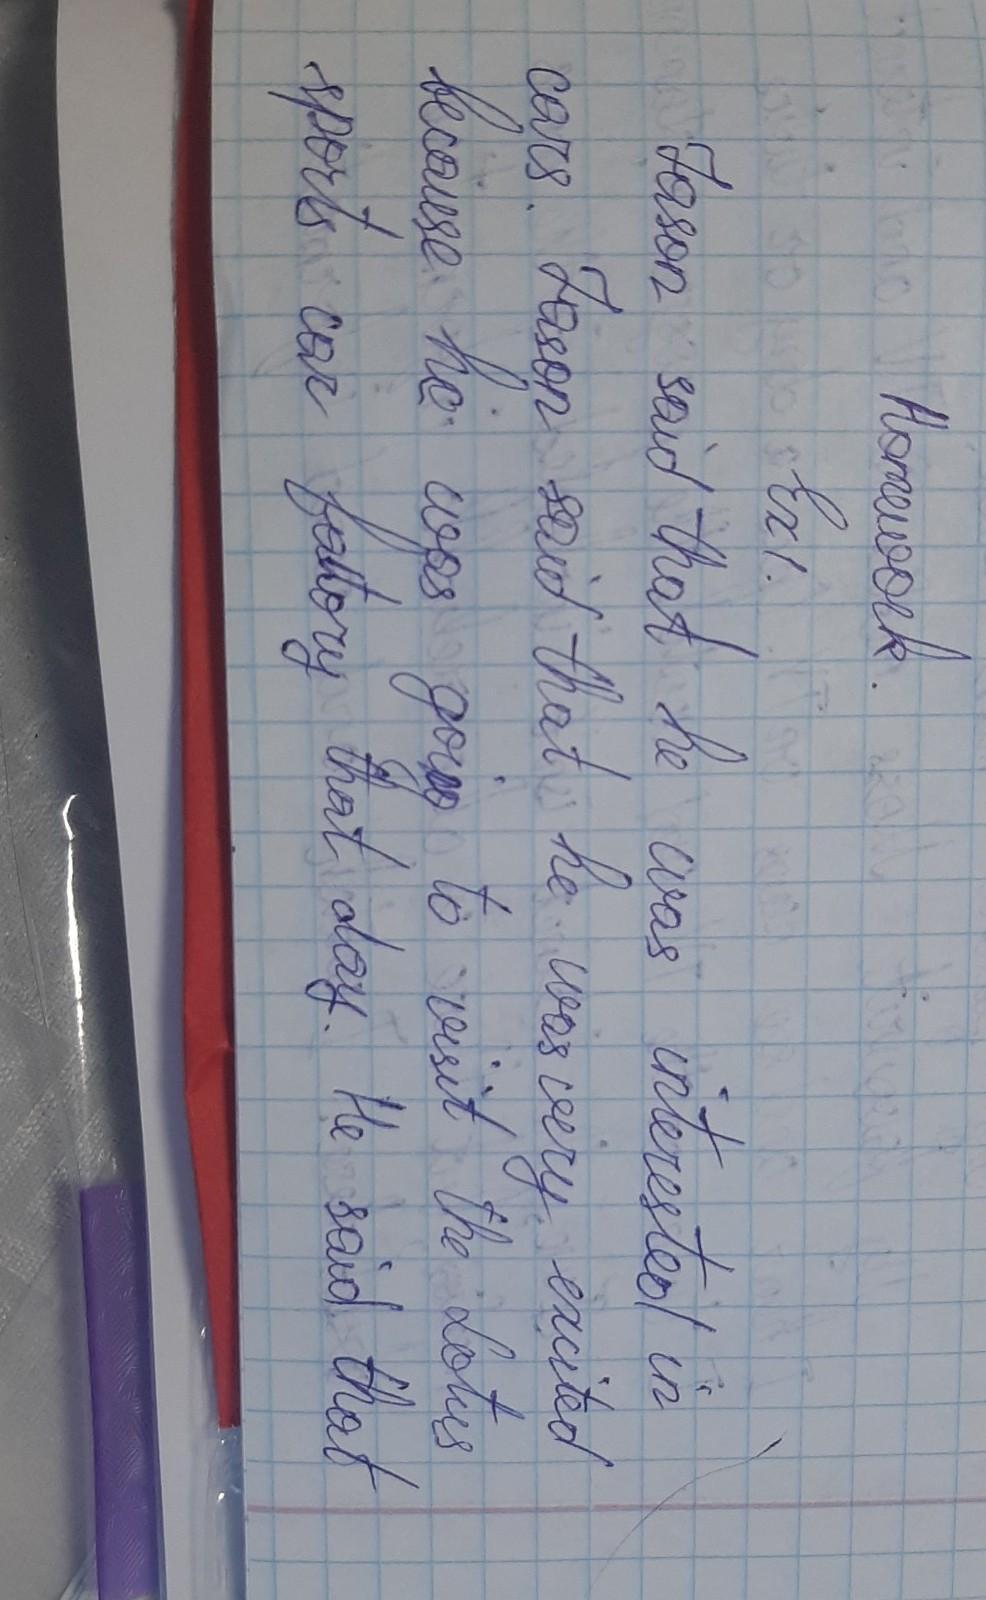 Homework.
Ex1.
Jason said that he was interested in
cars. Jason said that he was very excited
because he was going to visit the Lotus
sports car fattory that day. He said that